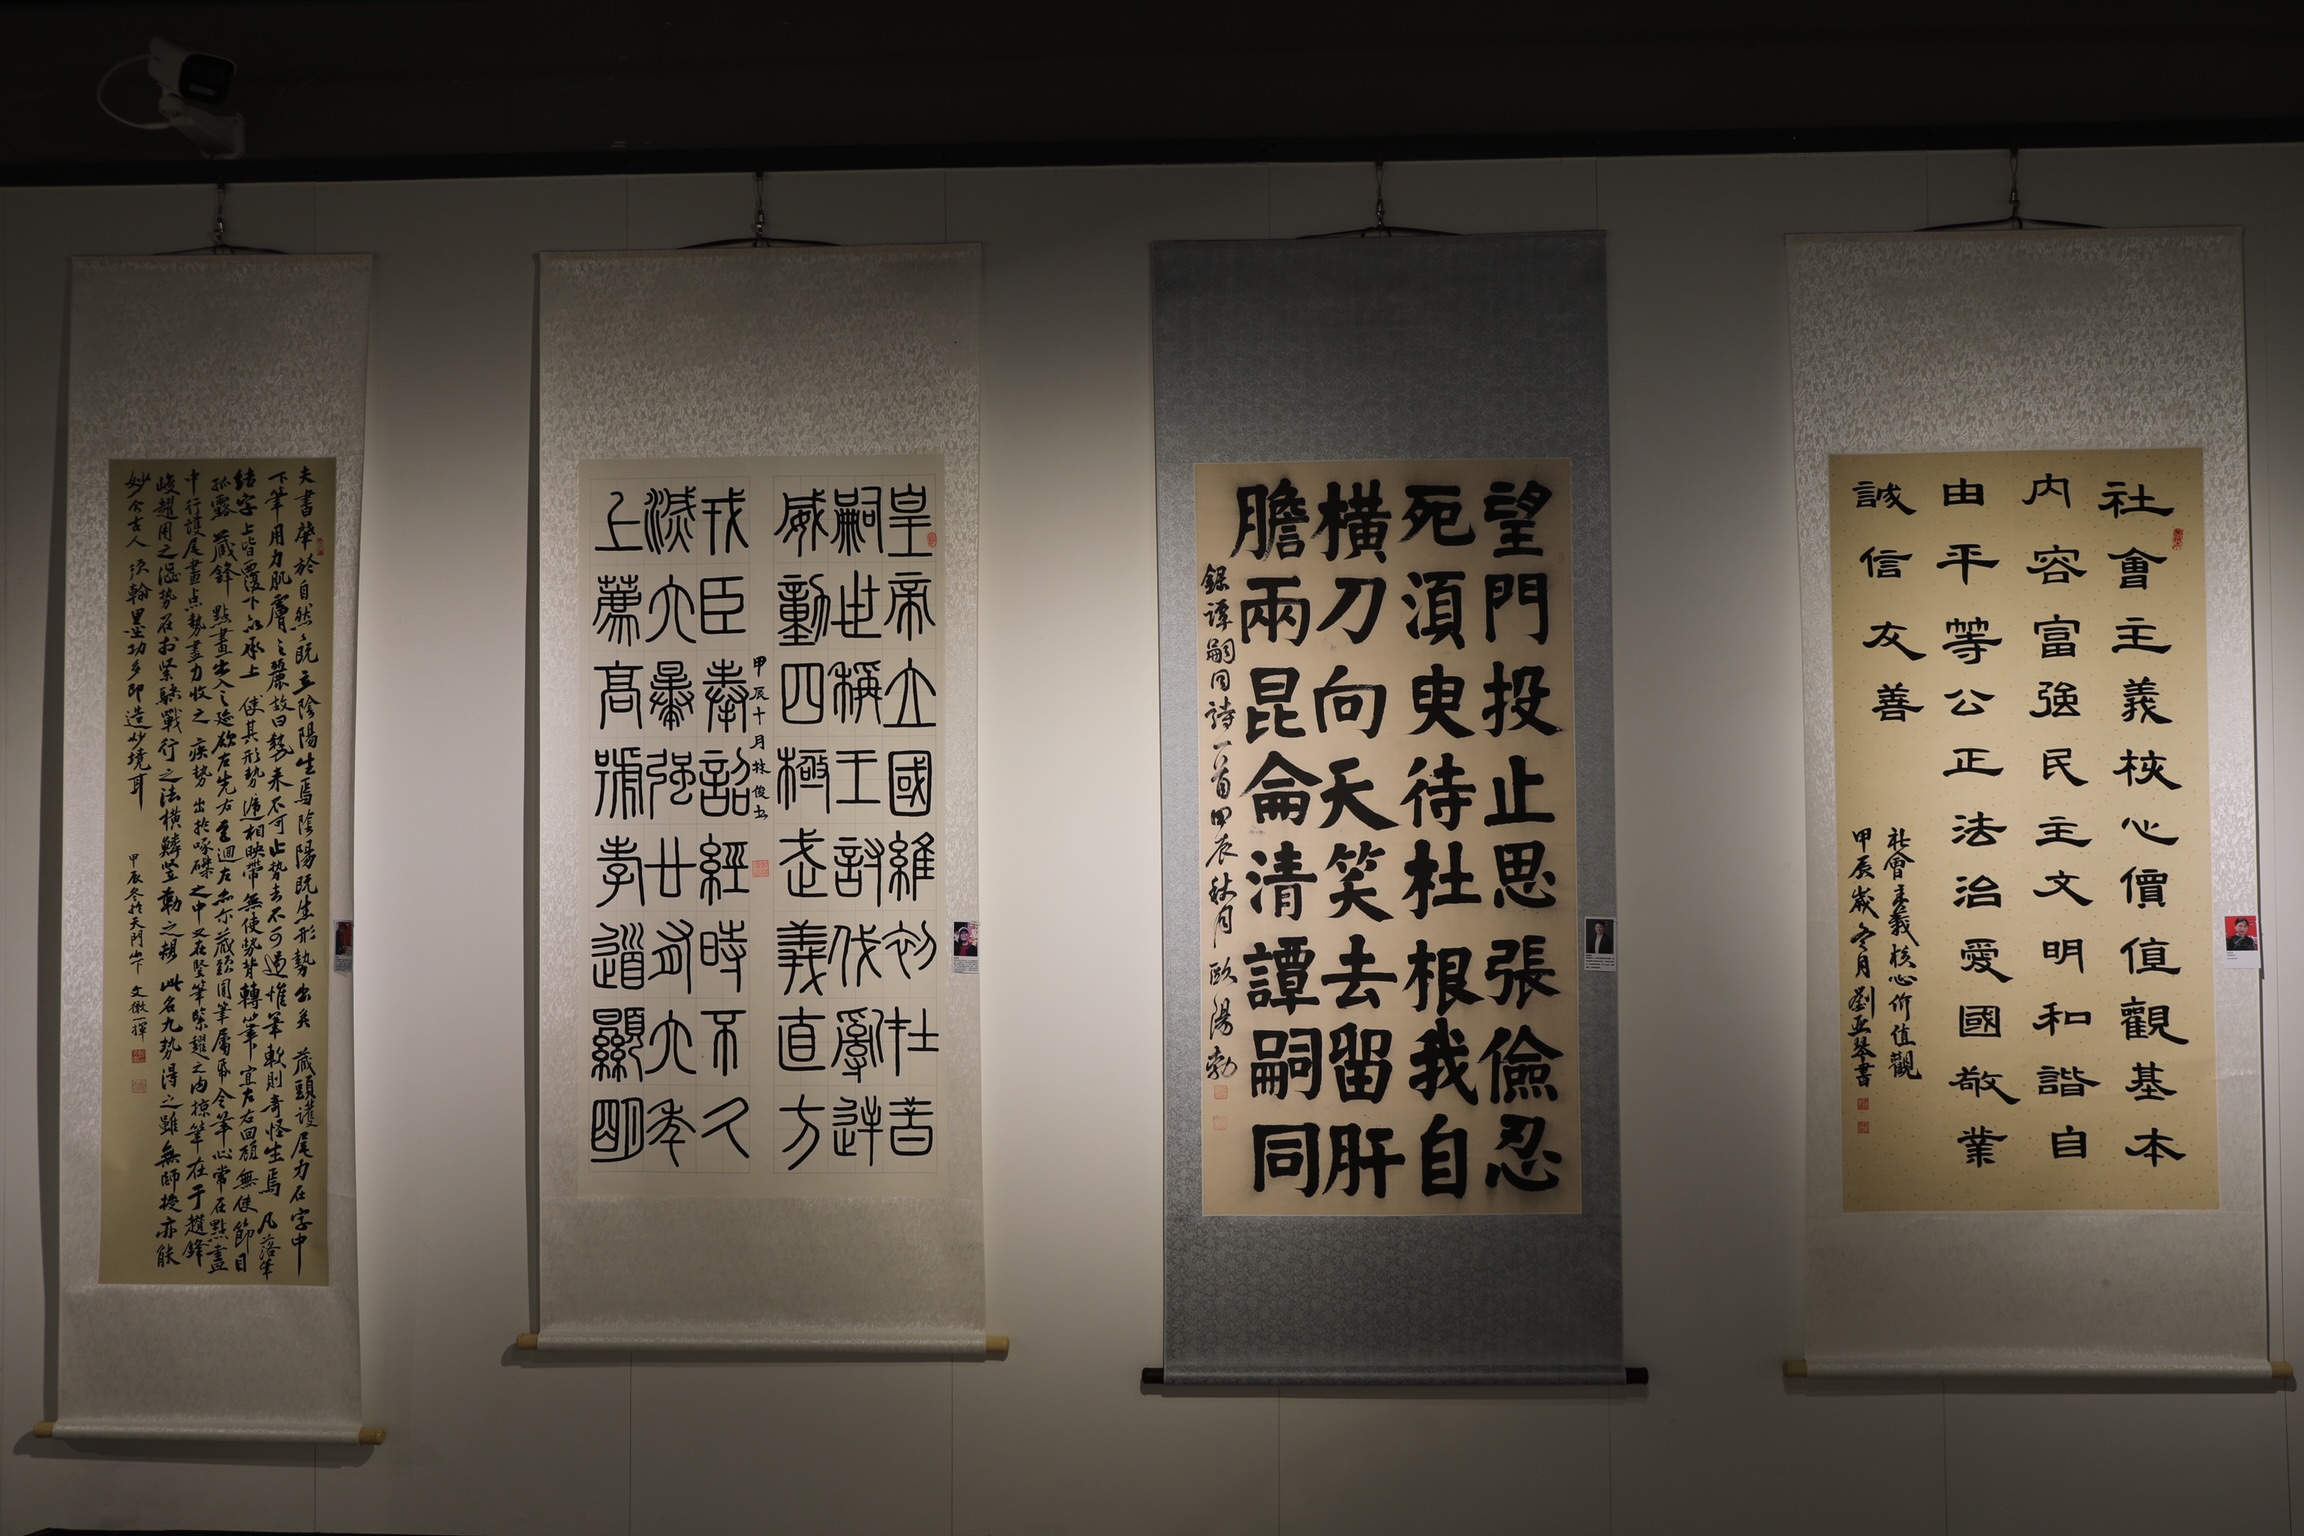 社會主義核心價值觀基本
內容富強民主文明和諧自
由平等公正法治愛國敬業
誠信友善
社會主義核心價值觀
甲辰歲冬月劉亞琴書
望門投止思張儉忍
死須臾待杜根我自
橫刀向天笑去留肝
膽兩昆侖清譚嗣同
錄譚嗣同詩一首甲辰秋月歐陽勃
皇帝立國維初在昔
嗣世稱王討伐亂逆
威動四極武義直方
戎臣奉詔經時不久
滅六暴強廿有六年
上薦高號孝道顯明
甲辰十月林俊書
夫書肇於自然〻既立陰陽生焉陰陽既生形勢出矣藏頭護尾力在字中
下筆用力肌膚之麗故曰勢來不可止勢去不可遏惟筆軟則奇怪生焉凡落筆
結字上皆覆下以承上使其形勢遞相映帶無使勢背轉筆宜左右回顧無使節目
孤露藏鋒點畫出入之迹欲左先右至迴左亦爾藏頭圓筆屬紙令筆心常在點畫
中行護尾畫點勢盡力收之疾勢出於啄磔之中又在豎筆緊趯之內掠筆在于趲鋒
峻趯用之澀勢在於緊駃戰行之法橫鱗豎勒之規此名九勢得之雖無師授亦能
妙合古人須翰墨功多即造妙境耳
甲辰冬於天門山下文徽一揮